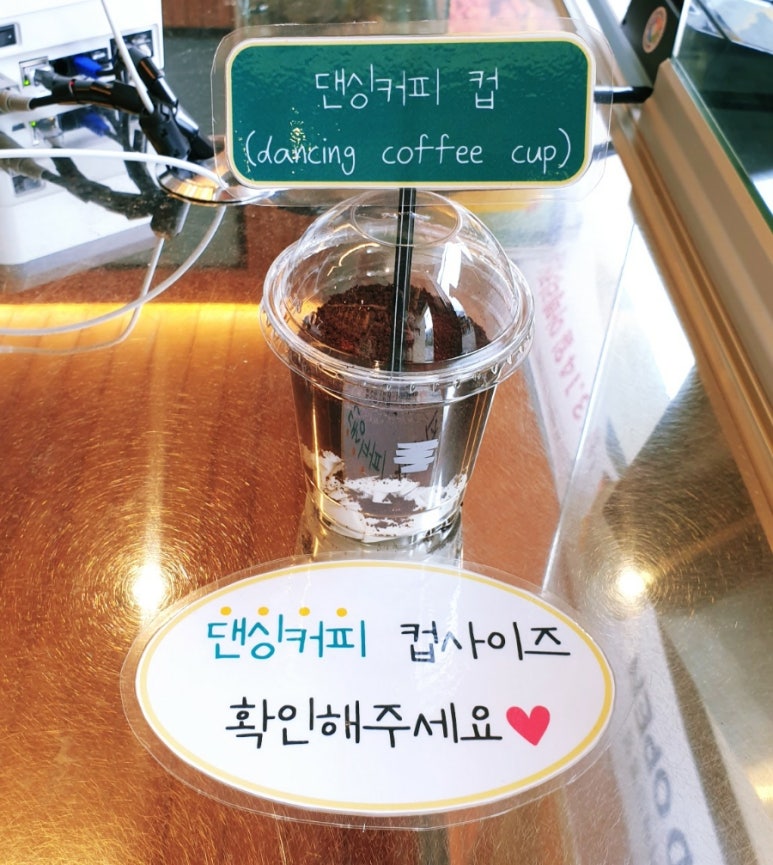 댄싱커피 컵
(dancing coffee cup)
댄싱커피 컵사이즈
확인해주세요